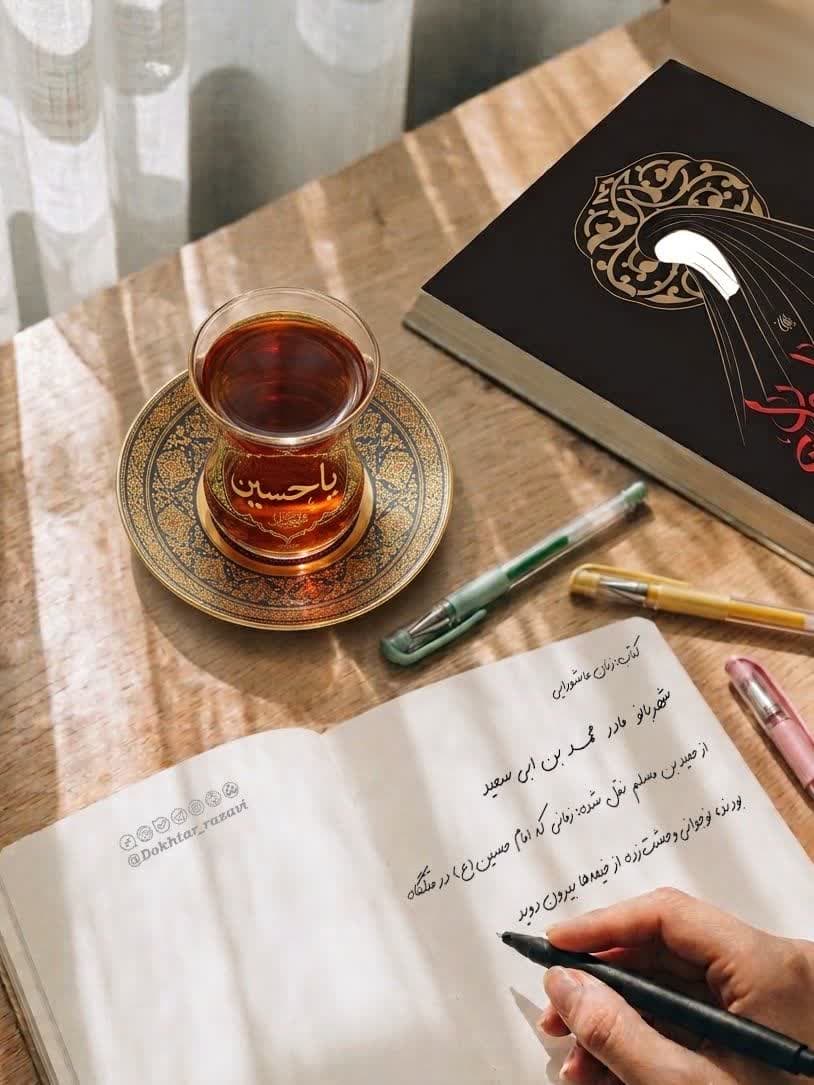 یا حسین
کتاب: زنان عاشورایی
شهربانو مادر محمد بن ابی سعید
از حمید بن مسلم نقل شده: زمانی که امام حسین (ع) در قتلگاه
بودند، نوجوانی وحشت زده از خیمه‌ها بیرون دوید
@Dokhtar_razavi